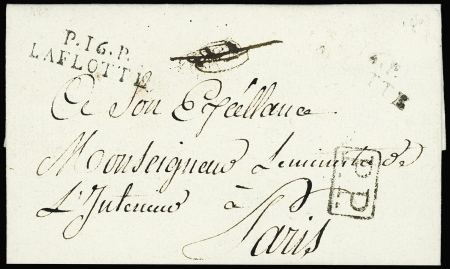 P.16.P.
LAFLOTTE
A Son Exçellance
Monseigneur Leministre de
L'Interieur à
Paris
P.P.